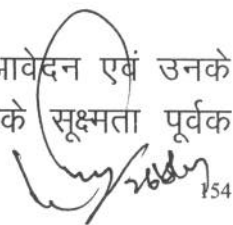 आवेदन एवं उनके
के सूक्ष्मता पूर्वक
154